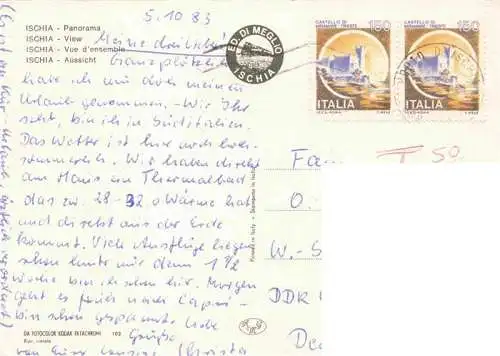 5.10.83
ISCHIA - Panorama
ISCHIA - View
ISCHIA - Vue d'ensemble
ISCHIA - Aussicht
Meine drei Lieben!
Ganz plötzlich
habe ich mir doch meinen
Urlaub genommen. - Wie Ihr
seht, bin ich in Süditalien.
Das Wetter ist hier noch hoch-
sommerlich. Wir haben direkt
am Haus ein Thermalbad
das zw. 28-32° Wärme hat
und direkt aus der Erde
kommt. Viele Ausflüge liegen
schon hinter mir denn 1 1/2
Woche bin ich schon hier. Morgen
geht es früh nach Capri -
bin schon gespannt. Liebe
Grüße
von Eurer
(Christa
(Es ist ein Kur-Urlaub, ärztlich verordnet)
DA FOTOCOLOR KODAK EKTACHROME 102
ED. DI MEGLIO
ISCHIA
CASTELLO DI
MIRAMARE - TRIESTE
150
ITALIA
CASTELLO DI
MIRAMARE - TRIESTE
150
ITALIA
T 50
Fa
O.
W.-S
DDR
De